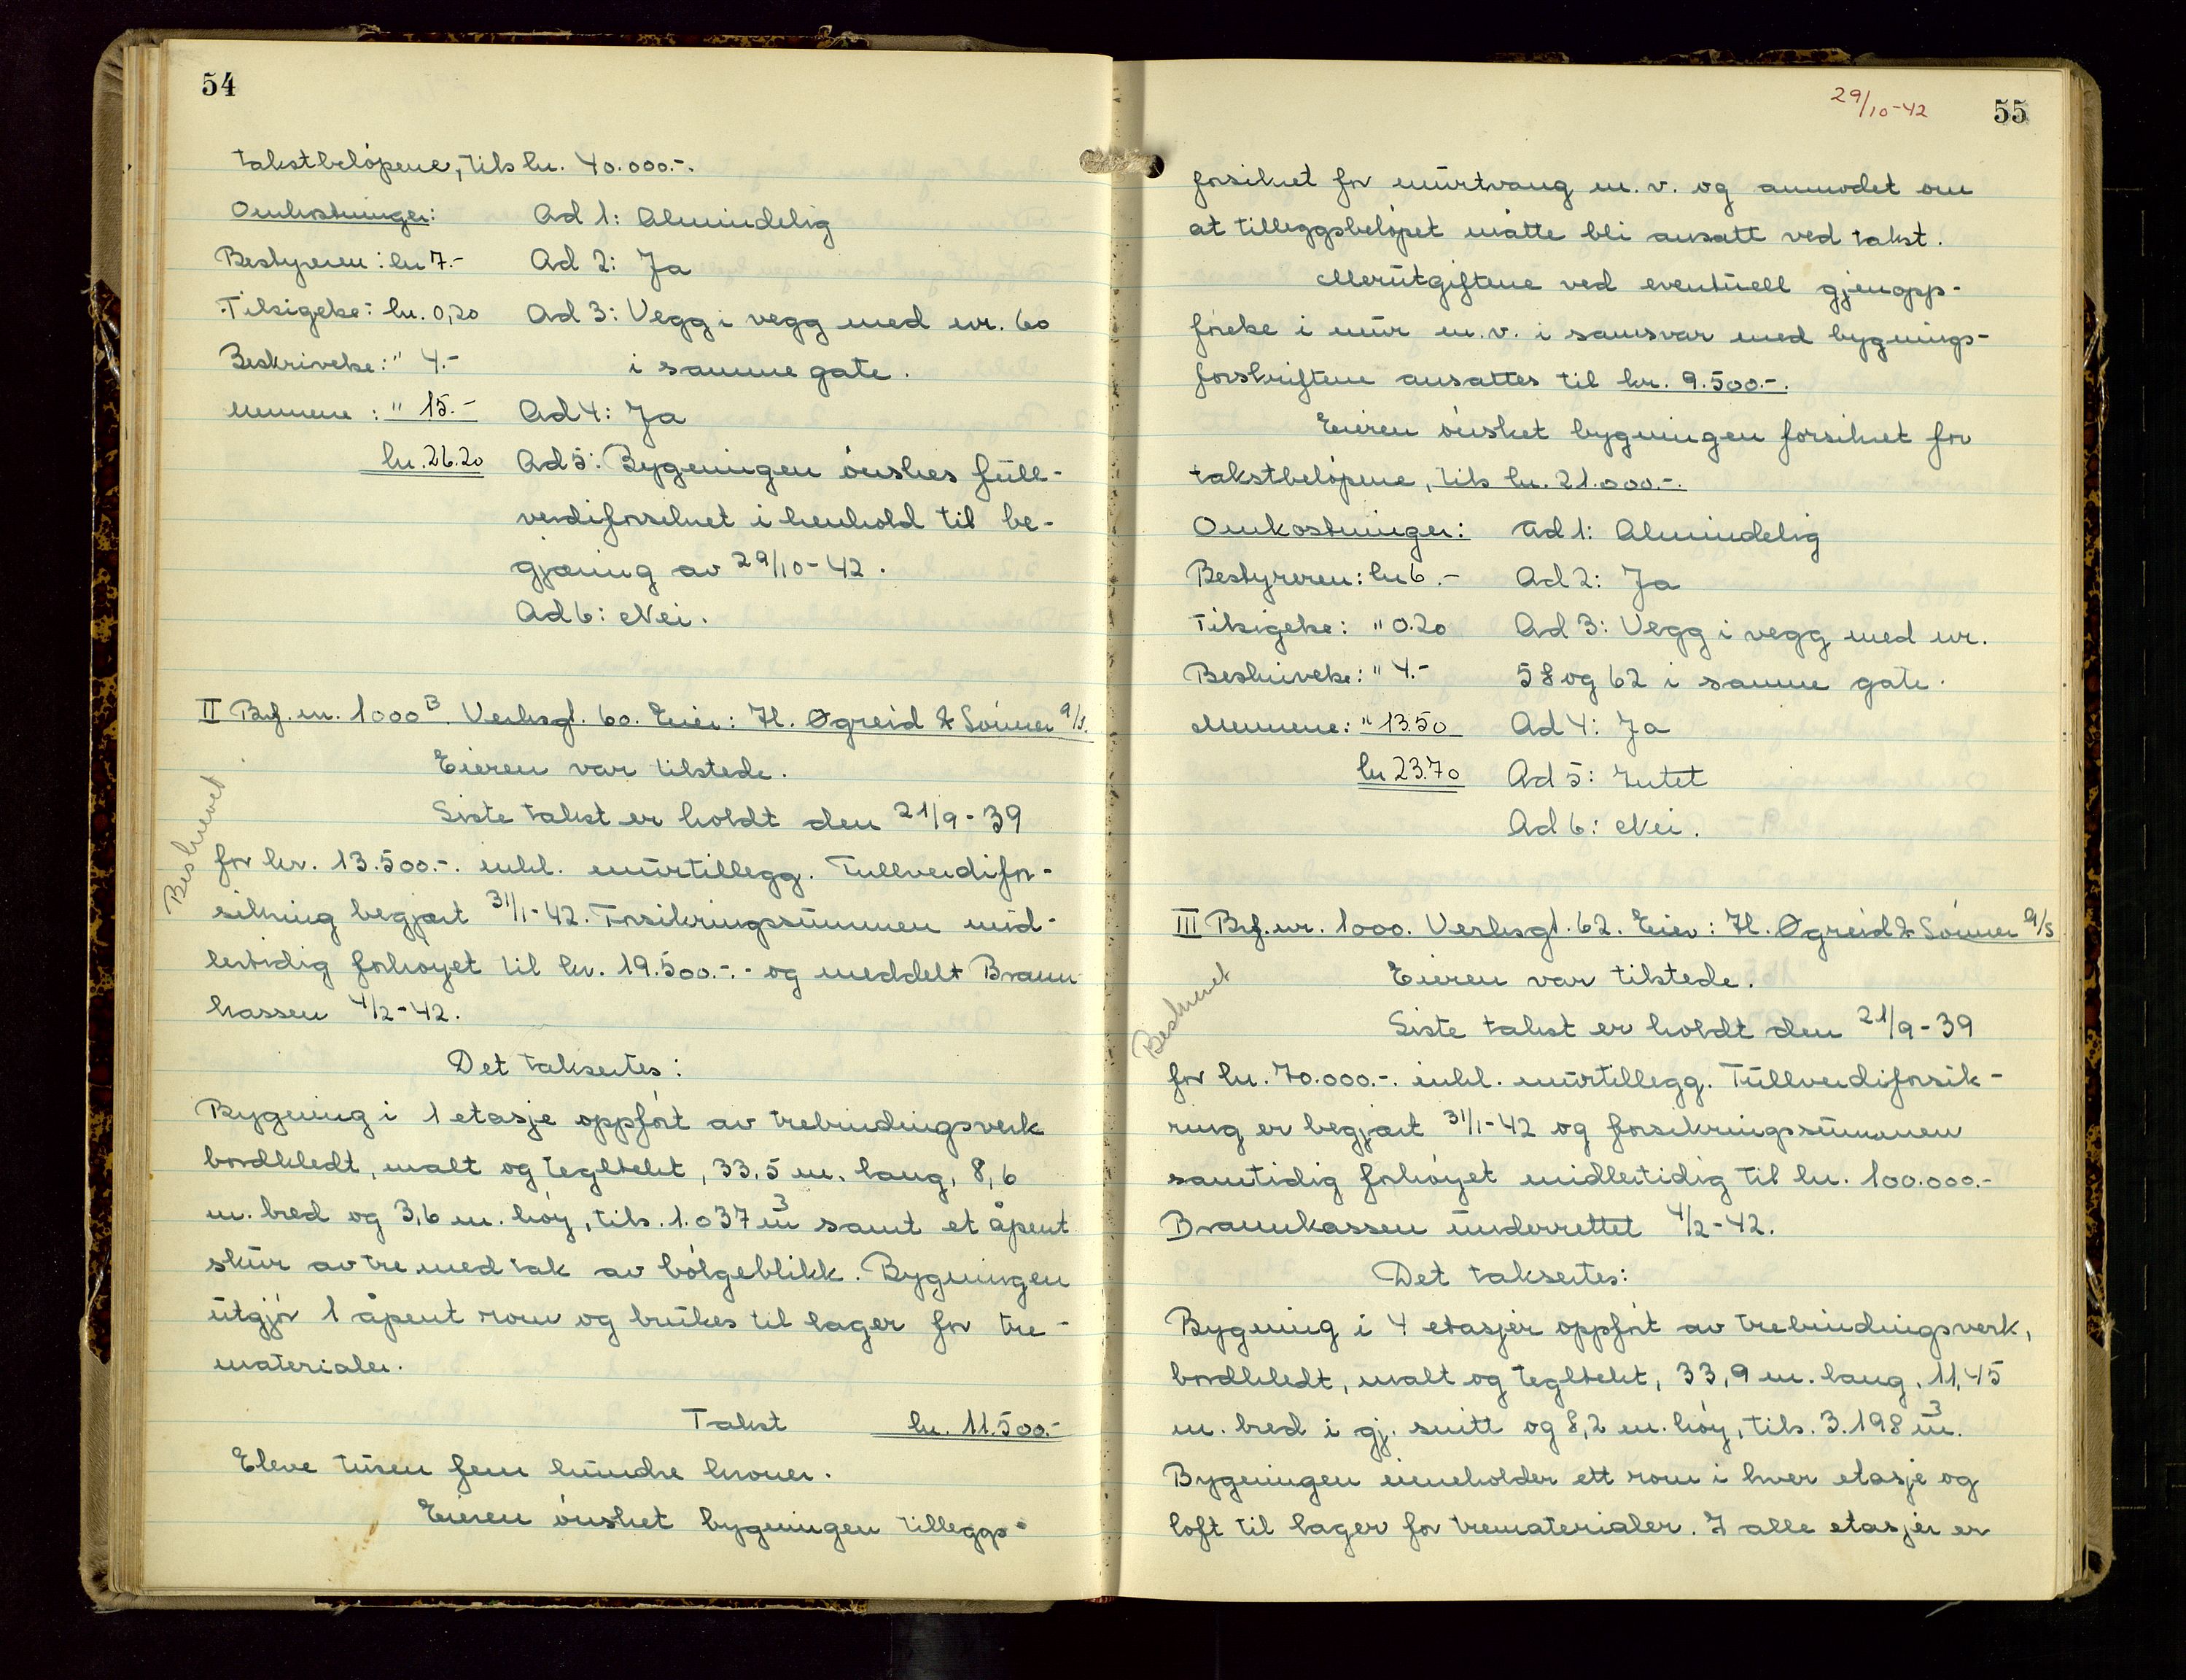 54
takstbeløpene, tils kr. 40.000.-.
Omkostninger: Ad 1: Almindelig
Bestyreren: kr 7.- Ad 2: Ja
Tilsigelse: kr. 0,20 Ad 3: Vegg i vegg med nr. 60
Beskrivelse: " 4.- i samme gate.
Mennene: " 15.- Ad 4: Ja
kr. 26.20 Ad 5: Bygningen ønskes full-
verdiforsikret i henhold til be-
gjæring av 29/10-42.
Ad 6: Nei.
II Brf. nr. 1000 B. Verksgt. 60. Eier: H. Øgreid & Sønner a/s.
Eieren var tilstede.
Beskrevet
Siste takst er holdt den 21/9-39
for kr. 13.500.-. inkl. murtillegg. Fullverdifor-
sikring begjært 31/1-42. Forsikringssummen mid-
lertidig forhøyet til kr. 19.500.-.- og meddelt Brann
kassen 4/2-42.
Det takseres:
Bygning i 1 etasje oppført av trebindingsverk
bordkledt, malt og tegltekt, 33,5 m. lang, 8,6
m. bred og 3,6 m. høy, tils. 1.037 m3 samt et åpent
skur av tre med tak av bølgeblikk. Bygningen
utgjør 1 åpent rom og brukes til lager for tre-
materialer.
Takst kr. 11.500.-
Eleve tusen fem hundre kroner.
Eieren ønsket bygningen tilleggs-
29/10-42 55
forsikret for murtvang m. v. og anmodet om
at tilleggsbeløpet måtte bli ansatt ved takst.
Merutgiftene ved eventuell gjenopp-
førelse i mur m. v. i samsvar med bygnings-
forskriftene ansattes til kr. 9.500.-.
Eieren ønsket bygningen forsikret for
takstbeløpene, tils kr. 21.000.-.
Omkostninger: Ad 1: Almindelig
Bestyreren: kr 6.- Ad 2: Ja
Tilsigelse: " 0.20 Ad 3: Vegg i vegg med nr.
Beskrivelse: " 4.- 58 og 62 i samme gate.
Mennene: " 13.50 Ad 4: Ja
kr 23.70 Ad 5: Intet
Ad 6: Nei.
III Brf. nr. 1000. Verksgt. 62. Eier: H. Øgreid & Sønner a/s
Eieren var tilstede.
Beskrevet
Siste takst er holdt den 21/9-39
for kr. 70.000.-. inkl. murtillegg. Fullverdiforsik-
ring er begjært 31/1-42 og forsikringssummen
samtidig forhøyet midlertidig til kr. 100.000.-
Brannkassen underrettet 4/2-42.
Det takseres:
Bygning i 4 etasjer oppført av trebindingsverk,
bordkledt, malt og tegltekt, 33,9 m. lang, 11,45
m. bred i gj. snitt og 8,2 m. høy, tils. 3.198 m3.
Bygningen inneholder ett rom i hver etasje og
loft til lager for trematerialer. I alle etasjer er